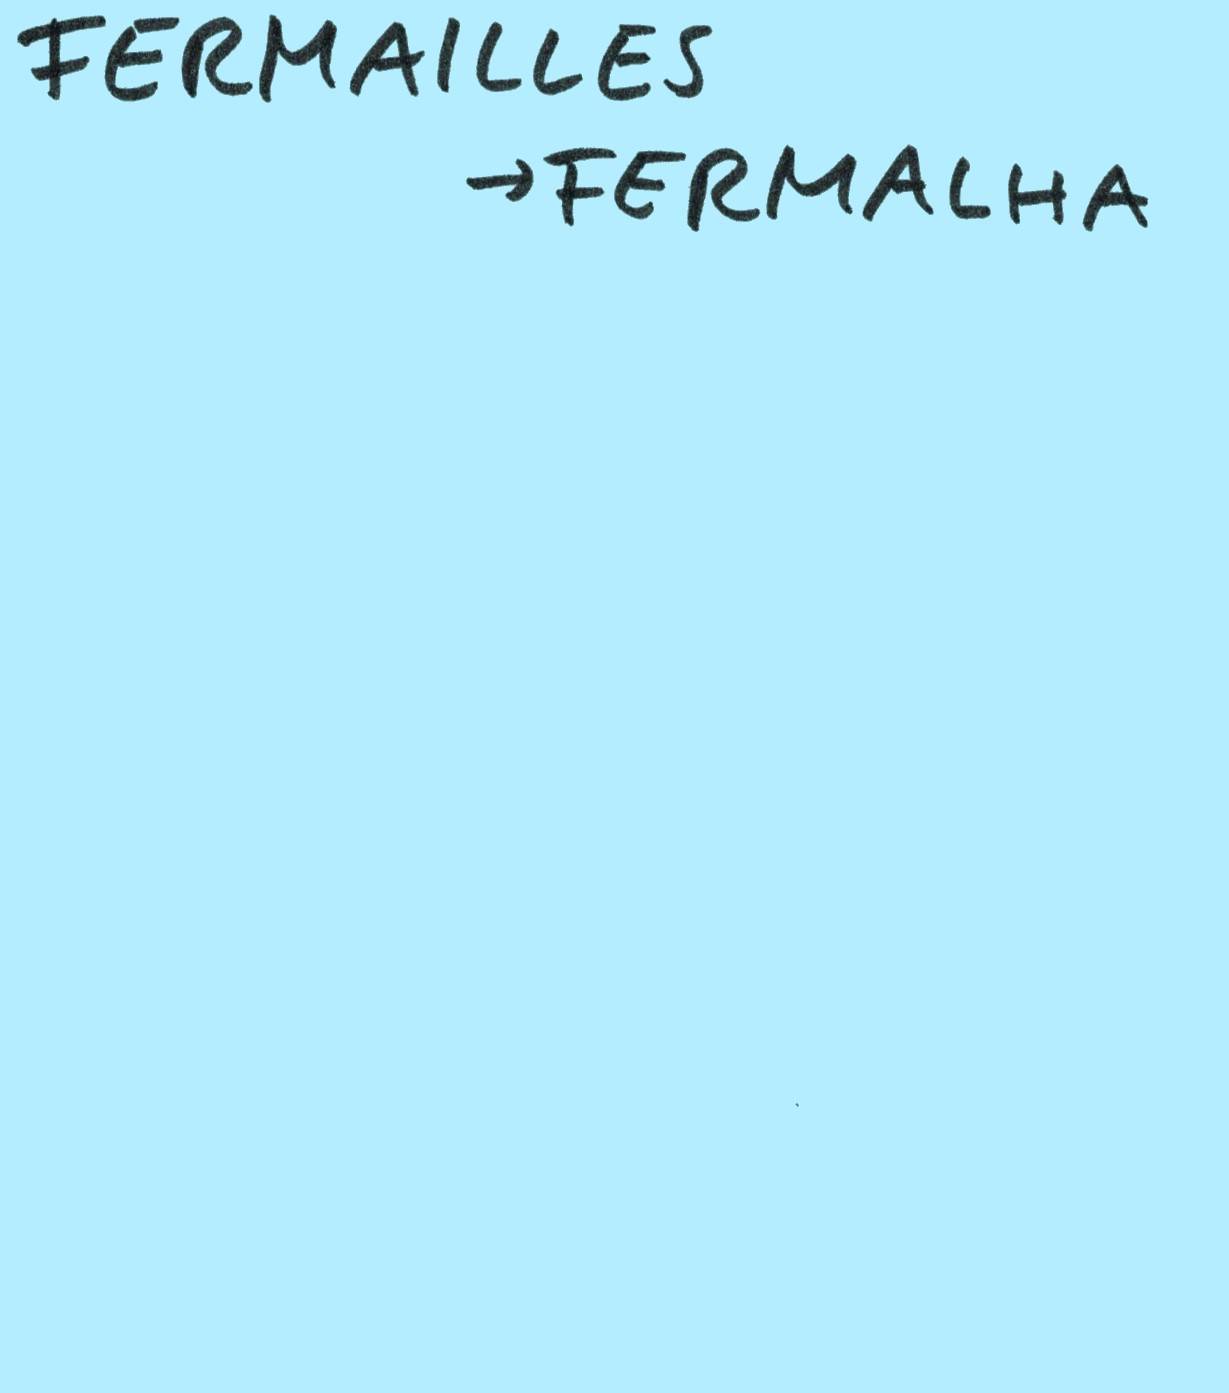 FERMAILLES
→FERMALHA